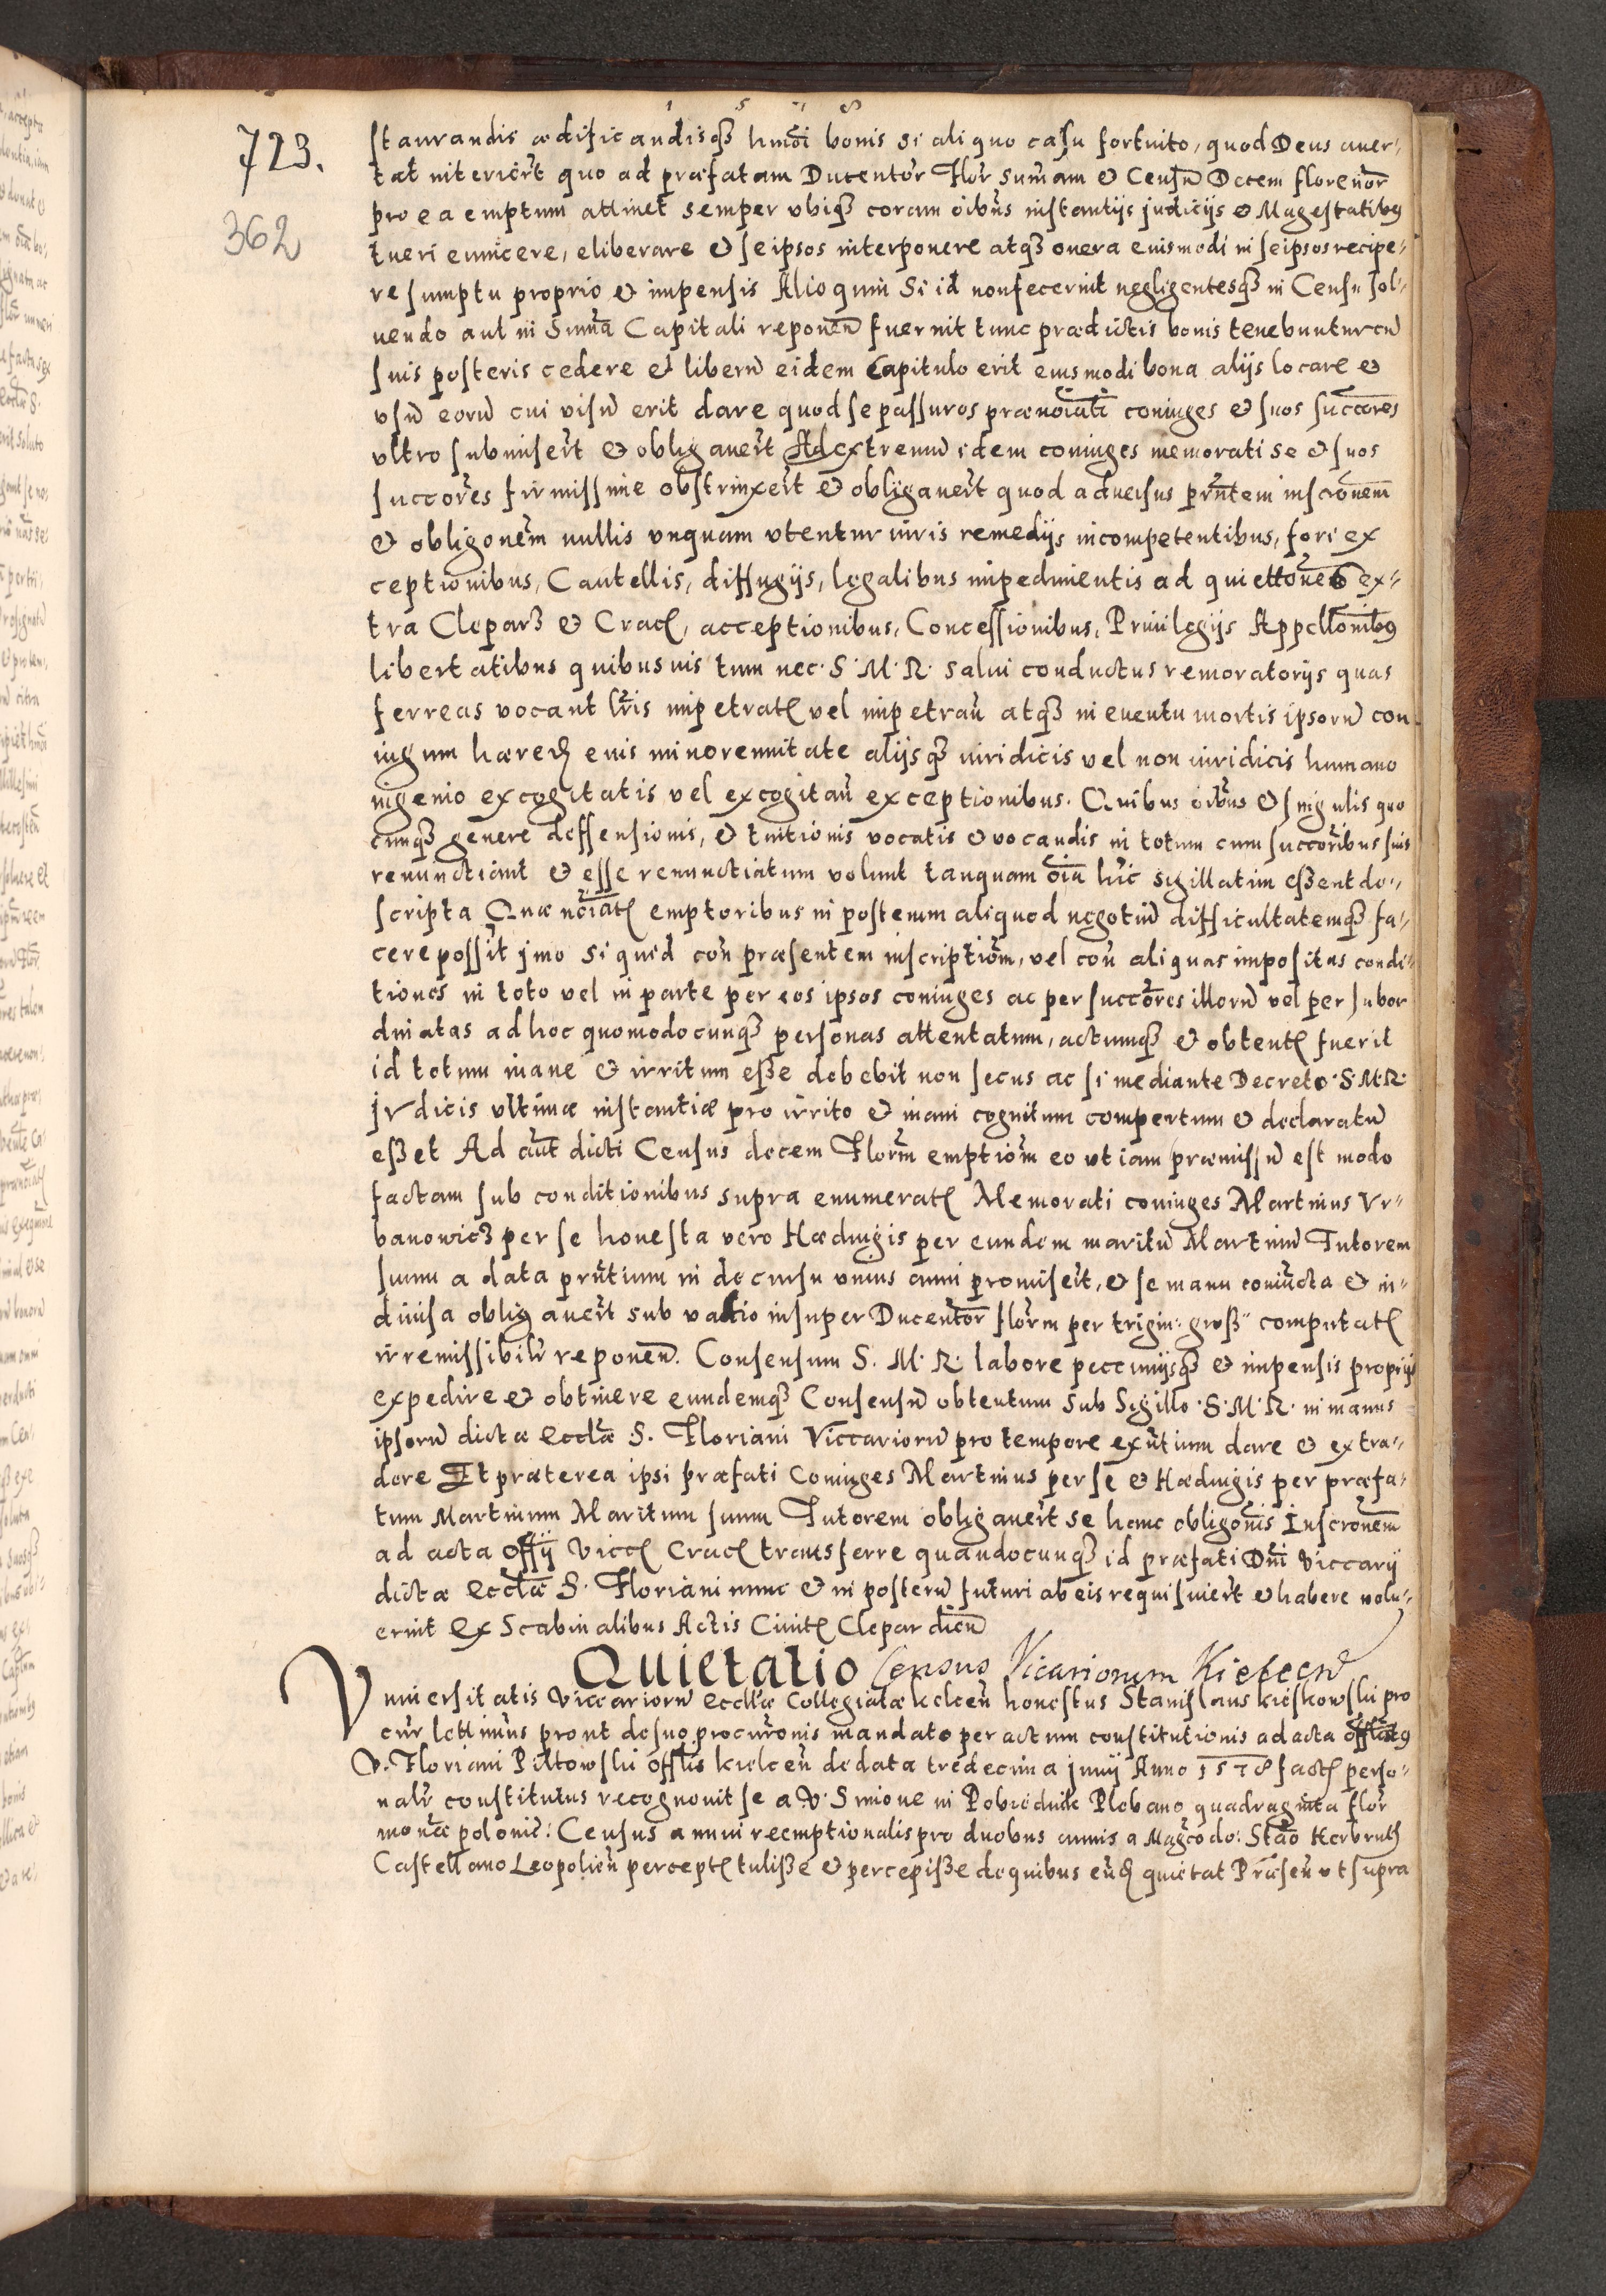 1 5 7 8
723.
362
staurandis ædificandisqȝ hmōi bonis Si aliquo casu fortuito, quod Deus auer-
tat interiērt quo ad præfatam Ducentōr Flōr Sum̄am & Censū Decem florenōr
pro ea emptum attinet semper vbiqȝ coram oībus instantijs judicijs & Magestatibꝰ
tueri euincere, eliberare & seipsos interponere atqȝ onera euismodi in seipsos recipe-
re sumptu proprio & impensis Alioquin Si id non fecerint negligentesqȝ in Censu sol-
uendo aut in Sum̄a Capitali reponēn fuerint tunc prædictis bonis tenebuntur cū
suis posteris cedere & liberū eidem Capitulo erit eiusmodi bona alijs locare &
vsū eorū cui visū erit dare quod se passuros prænōiati coniuges & suos succōres
vltro submisērt & obligauērt Ad extremū idem coniuges memorati se & suos
succōres firmissime obstrinxērt & obligauērt quod aduersus prn̄tem inscrōnem
& obligōnem nullis vnquam vtentur iuris remedijs incompetentibus, fori ex
ceptionibus, Cautellis, diffugijs, legalibus impedimentis ad quiettōnes ex-
tra Cleparȝ & Crac, acceptionibus, Concessionibus, Priuilegijs Appellōnibꝰ
libertatibus quibusuis tum nec S. M. R. salui conductus remoratorijs quas
ferreas vocant lr̄is impetrat vel impetrān atqȝ in euentu mortis ipsorū con
iugum hæred euis minorennitate alijsqȝ iuridicis vel non iuridicis humano
ingenio excogitatis vel excogitān exceptionibus. Quibus oībus & singulis quo
cunqȝ genere deffensionis, & tuitionis vocatis & vocandis in totum cum succōribus suis
renunctiant & esse renunctiatum volunt tanquam oīa hic sigillatim essent de-
scripta Quæ nōiat emptoribus in posterum aliquod negotiū difficultatemqȝ fa-
cere possit jmo si quid con̄ præsentem inscriptiōm, vel con̄ aliquas impositas condi-
tiones in toto vel in parte per eos ipsos coniuges ac per succōres illorū vel per subor
dinatas ad hoc quomodocunqȝ personas attentatum, actumqȝ & obtent fuerit
id totum inane & irritum esse debebit non secus ac si mediante Decreto S. M. R.
jVdicis vltimæ instantiæ pro irrito & inani cognitum compertum & declaratū
esset Ad aūt dicti Census decem Florm̄ emptiōm eo vt iam præmissū est modo
factam sub conditionibus supra enumerat Memorati coniuges Martinus Vr-
banowicȝ per se honesta vero Hæduigis per eundem maritū Martinū Tutorem
suum a data prn̄tium in decursu vnius anni promisērt, & se manu coniūcta & in-
diuisa obligauērt sub vadio insuper Ducentōr flōrm per trigin: gross computat
irremissibilr̄ reponēn. Consensum S. M. R. labore peccunijsqȝ & impensis proprijs
expedire & obtinere eundemqȝ Consensū obtentum sub Sigillo S. M. R. in manus
ipsorū dictæ Ecclǣ S. Floriani Viccariorū pro tempore exn̄tium dare & extra-
dere Et præterea ipsi præfati Coniuges Martinus per se & Hæduigis per præfa-
tum Martinum Maritum suum Tutorem obligauērt se hanc obligōnis Inscrōnem
ad acta Offij Vicc Crac transferre quandocunqȝ id præfati Dn̄i Viccarij
dictæ Ecclǣ S. Floriani nunc & in posterū futuri ab eis requisiuērt & habere volu-
erint Ex Scabinalibus Actis Ciuit Clepardien̄
Quietatio Census Vicariorum Kielcen̄
Vniuersitatis Viccariorū Ecclǣ Collegiatæ kelcen̄ honestus Stanislaus kieskowski pro
cūr lettimus prout de suo procurōnis mandato per actum constitutionis ad acta offlātꝰ
V. Floriani Piltowski offlis kielcen̄ de data tredecima junij Anno 1578 fact perso-
nalr̄ constitutus recognouit se a V. Simone in Pobiednik Plebano quadraginta flor
monetæ polonic: Census annui reemptionalis pro duobus annis a Magco do: Stāo Herburth
Castellano Leopolien̄ percept tulisse & percepisse de quibus eūd quietat Præsen̄ vt supra